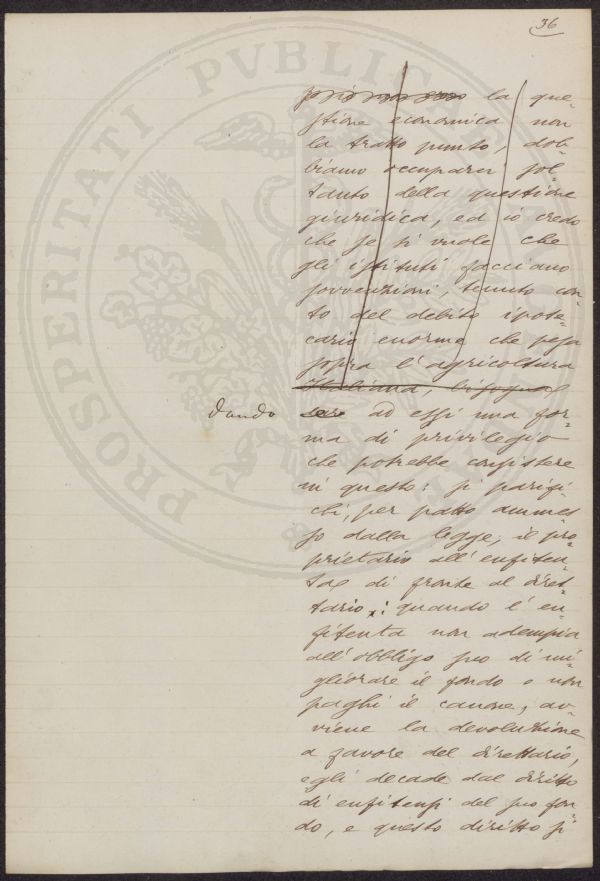 36
la que-
stione economica non
la tratto punto, dob-
biamo occuparci sol-
tanto della questione
giuridica, ed io credo
che se si vuole che
gli istituti facciano
sovvenzioni, tenuto con-
to del debito ipote-
cario enorme che pesa
sopra l'agricoltura
Italiana, bisogna
Dando dare ad essi una for-
ma di privilegio
che potrebbe consistere
in questo: si parifi-
chi, per patto ammes-
so dalla legge, il pro-
prietario all'enfiteu-
ta di fronte al diret-
tario: quando l'en-
fiteuta non adempia
all'obbligo suo di mi-
gliorare il fondo o non
paghi il canone, av-
viene la devoluzione
a favore del direttario,
egli decade dal diritto
di enfiteusi del suo fon-
do, e questo diritto si
PROSPERITATI PVBLICAE